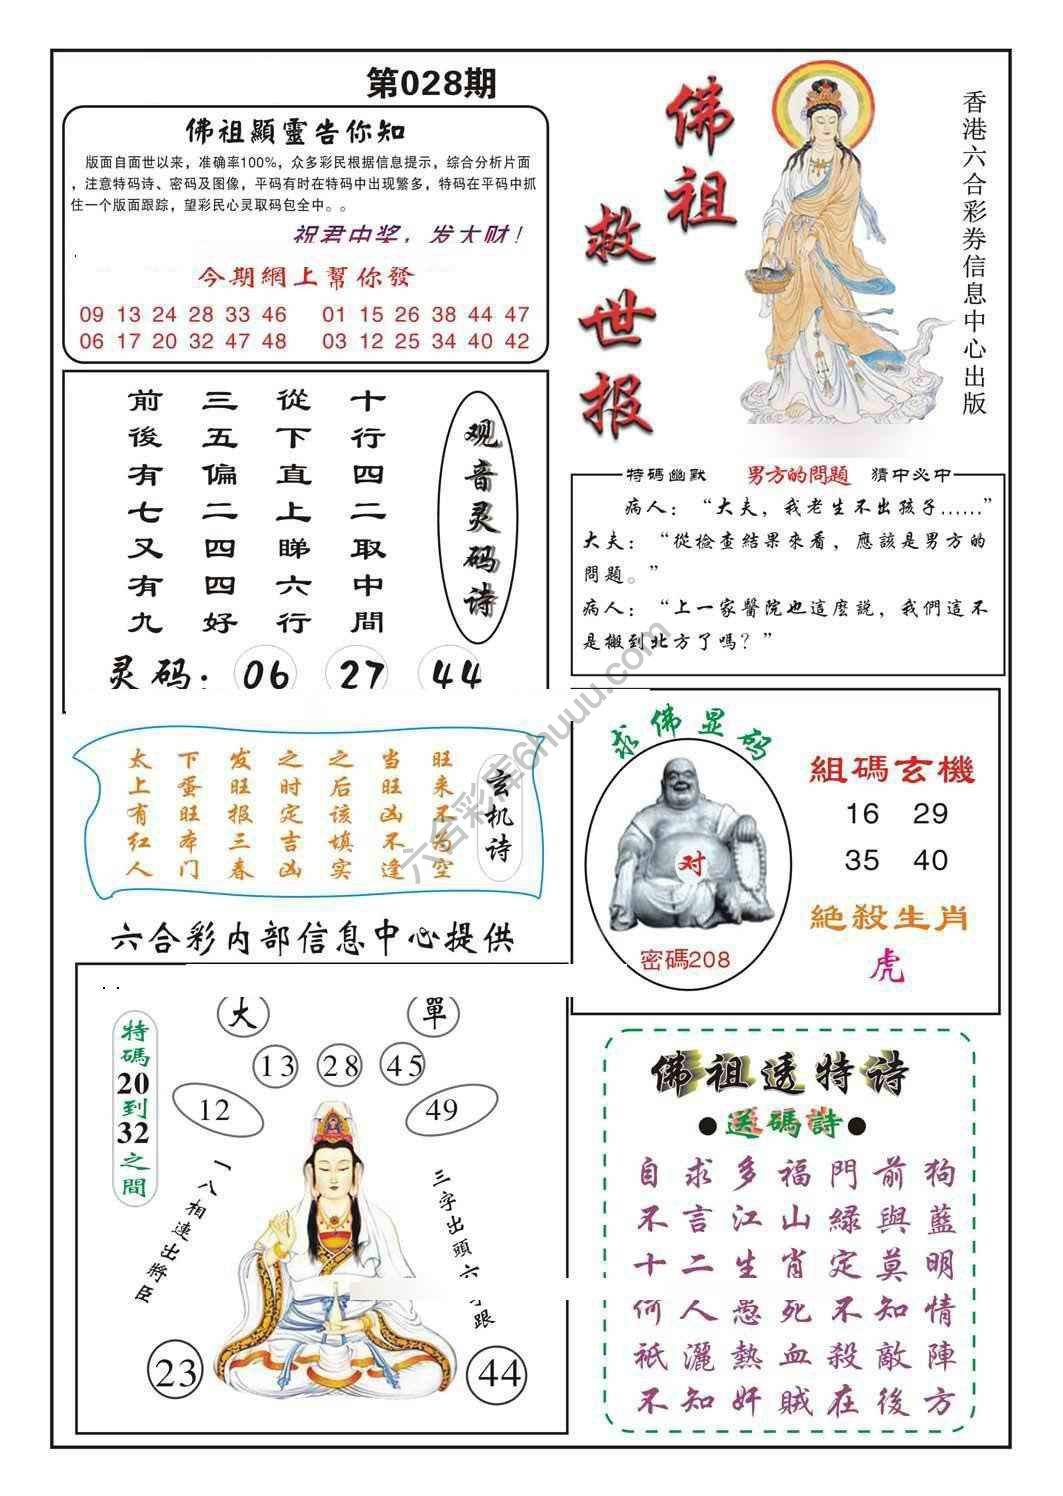 第028期
佛祖顯靈告你知
版面自面世以来，准确率100%，众多彩民根据信息提示，综合分析片面
，注意特码诗、密码及图像，平码有时在特码中出现繁多，特码在平码中抓
住一个版面跟踪，望彩民心灵取码包全中。。
祝君中奖，发大财！
今期網上幫你發
09 13 24 28 33 46 01 15 26 38 44 47
06 17 20 32 47 48 03 12 25 34 40 42
佛祖
救世报
香港六合彩券信息中心出版
观音灵码诗
十行四二取中間
從下直上睇六行
三五偏二四四好
前後有七又有九
灵码：06 27 44
特碼幽默 男方的問題 猜中必中
病人：“大夫，我老生不出孩子……”
大夫：“從檢查結果來看，應該是男方的
問題。”
病人：“上一家醫院也這麼説，我們這不
是搬到北方了嗎？”
玄机诗
旺来不为空
当旺凶不逢
之后该填实
之时定吉凶
发旺报三春
下蛋旺本门
太上有红人
求佛显码
对
密碼208
組碼玄機
16 29
35 40
絶殺生肖
虎
六合彩内部信息中心提供
大 單
13 28 45
12 49
特碼20到32之間
一八相連出將臣
三字出頭六
跟
23 44
佛祖透特诗
●送碼詩●
自求多福門前狗
不言江山緑與藍
十二生肖定莫明
何人愚死不知情
衹灑熱血殺敵陣
不知奸賊在後方
六合彩库6huuu.com